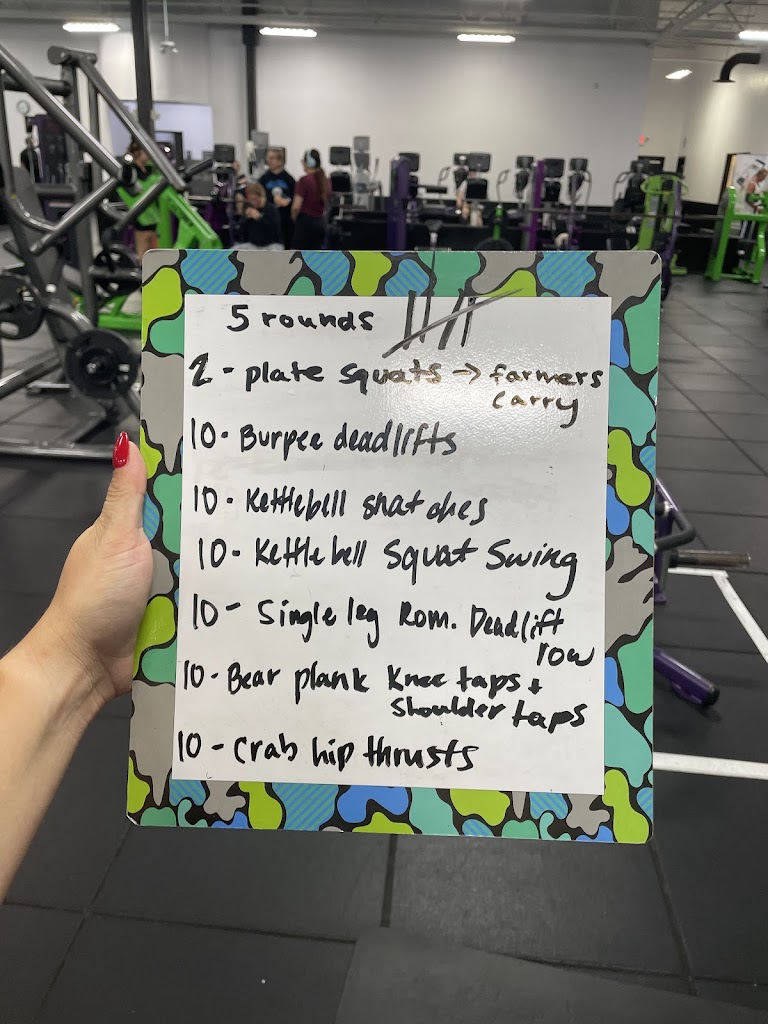 5 rounds
2 - plate squats → farmers
carry
10 - Burpee deadlifts
10 - Kettlebell snatches
10 - Kettlebell Squat Swing
10 - Single leg Rom. Deadlift
row
10 - Bear plank Knee taps +
Shoulder taps
10 - Crab hip thrusts